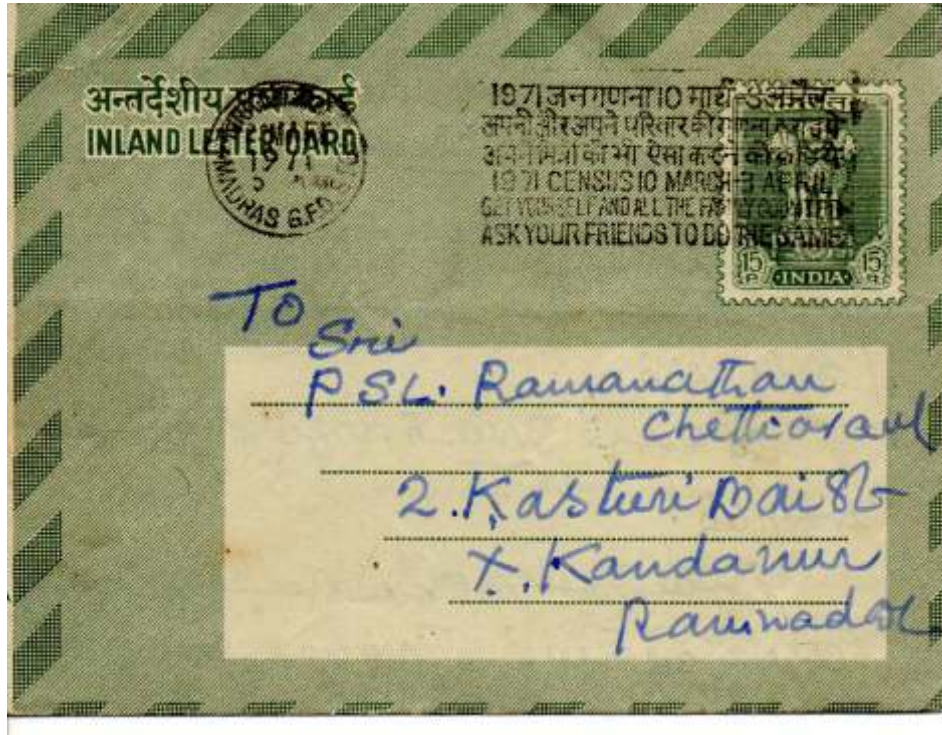 अन्तर्देशीय पत्र कार्ड
INLAND LETTER CARD
1971
MADRAS G.P.O.
1971 जनगणना 10 मार्च-3 अप्रैल
अपनी और अपने परिवार की गणना कराइये
अपने मित्रों को भी ऐसा करने को कहिये
1971 CENSUS 10 MARCH-3 APRIL
GET YOURSELF AND ALL THE FAMILY COUNTED
ASK YOUR FRIENDS TO DO THE SAME
15 P. INDIA 15
To
Sri
P SL. Ramanathan
Chettiar
2. Kasturi Bai St
X. Kandanur
Ramnad